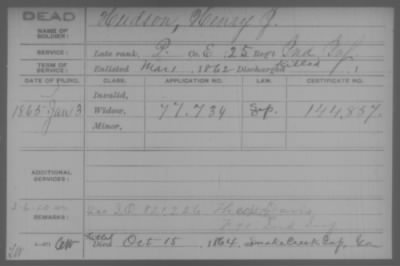 DEAD
NAME OF SOLDIER: Hudson, Henry J.
SERVICE: Late rank, P. Co. E, 25 Reg't Ind. Inf.
TERM OF SERVICE: Enlisted Mar 1 1862 Discharged Killed 1
DATE OF FILING. CLASS. APPLICATION NO. LAW. CERTIFICATE NO.
Invalid,
1865 Jan 3 Widow, 77.734 144,857.
Minor,
ADDITIONAL SERVICES:
REMARKS:
Killed Died Oct 15, 1864, Snake Creek Gap, Ga